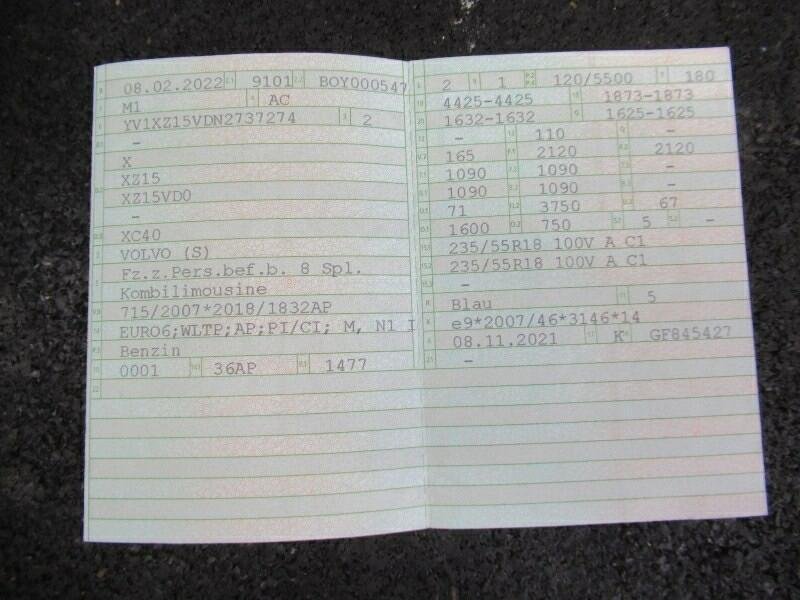 08.02.2022 9101 BOY000547
M1 AC
YV1XZ15VDN2737274 2
–
X
XZ15
XZ15VD0
–
XC40
VOLVO (S)
Fz.z.Pers.bef.b. 8 Spl.
Kombilimousine
715/2007*2018/1832AP
EURO6;WLTP;AP;PI/CI; M, N1 I
Benzin
0001 36AP 1477
2 1 120/5500 180
4425-4425 1873-1873
1632-1632 1625-1625
– 110 –
165 2120 2120
1090 1090 –
1090 1090 –
71 3750 67
1600 750 5 –
235/55R18 100V A C1
235/55R18 100V A C1
–
Blau 5
e9*2007/46*3146*14
08.11.2021 K GF845427
–